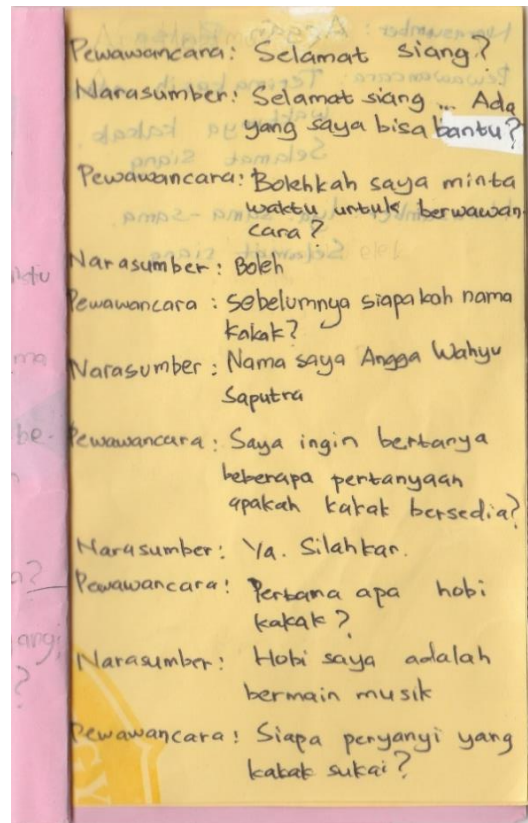 Pewawancara: Selamat siang?
Narasumber: Selamat siang ... Ada
yang saya bisa bantu?
Pewawancara: Bolehkah saya minta
waktu untuk berwawan-
cara?
Narasumber: Boleh
Pewawancara: sebelumnya siapakah nama
kakak?
Narasumber: Nama saya Angga Wahyu
Saputra
Pewawancara: Saya ingin bertanya
beberapa pertanyaan
apakah kakak bersedia?
Narasumber: Ya. Silahkan.
Pewawancara: Pertama apa hobi
kakak?
Narasumber: Hobi saya adalah
bermain musik
Pewawancara: Siapa penyanyi yang
kakak sukai?